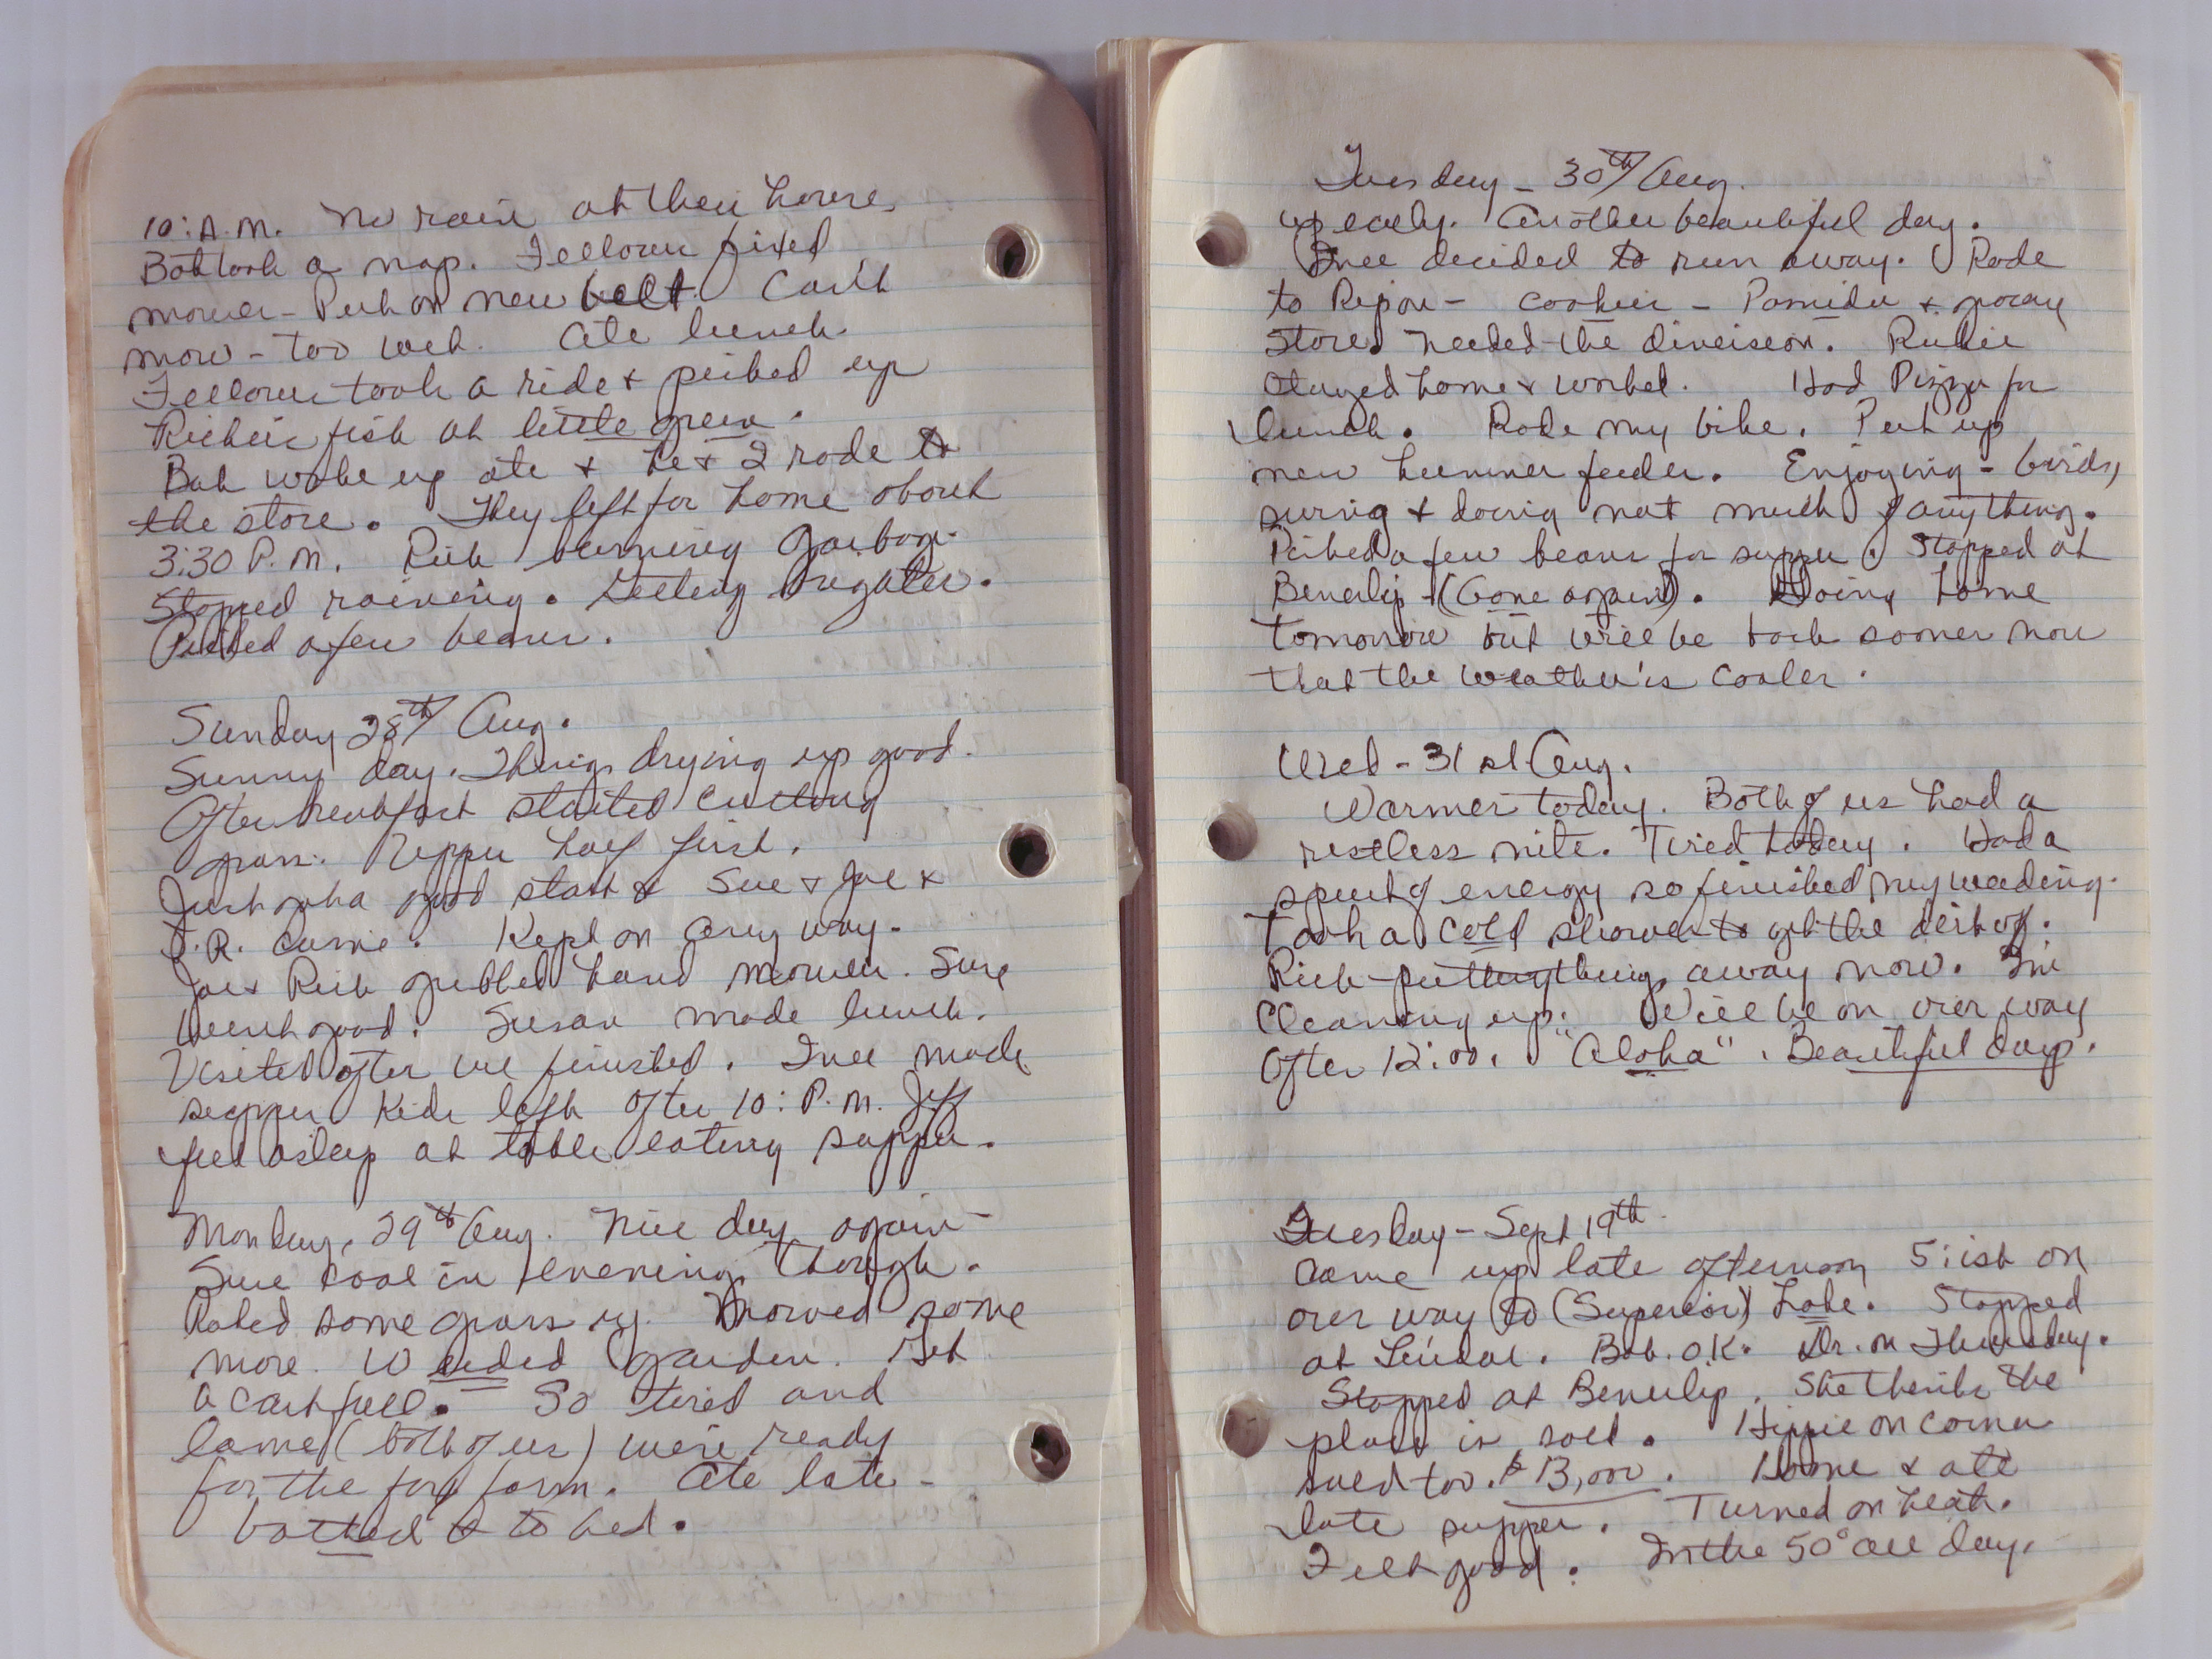 10: A.M. No rain at their house,
Bob took a nap. Fellows fixed
mower - Put on new belt. Can't
mow - too wet. Ate lunch.
Fellows took a ride & picked up
Richie's fish at little green.
Bob woke up ate & he & I rode to
the store. They left for home about
3:30 P.M. Rich burning garbage.
Stopped raining. Getting brighter.
Picked a few beans.
Sunday 28th Aug.
Sunny day. Things drying up good.
After breakfast started cutting
grass. Upper half first.
Just gotta good start & Sue & Joe &
J.R. came. Kept on any way.
Joe & Rich grabbed hand mower. Sure
went good. Susan made lunch.
Visited after we finished. I made
supper Kids left after 10: P.M. Jeff
fell asleep at table eating supper.
Monday, 29th Aug. Nice day again -
Sure cool in evening though.
Raked some grass up. Mowed some
more. Weeded garden. Got
a cart full. So tired and
lame (both of us) were ready
for the farm. Ate late -
batted & to bed.
Tuesday - 30th Aug.
up early. Another beautiful day.
decided to run away. Rode
to Ripon - cookies - Pamida & grocery
store. Needed the diversion. Richie
stayed home & worked. Had Pizza for
lunch. Rode my bike. Put up
new hummer feeder. Enjoying - birds,
swing & doing not much of anything.
Picked a few beans for supper. Stopped at
Beverly (Gone again). Going home
tomorrow but will be back sooner now
that the weather's cooler.
Wed - 31st Aug.
Warmer today. Both of us had a
restless nite. Tired today. Had a
spurt of energy so finished my weeding.
Took a cold shower to get the dirt off.
Rich - putting things away now. I'm
cleaning up. Will be on our way
after 12:00. "Aloha". Beautiful days.
Tuesday - Sept 19th
Came up late afternoon 5:ish on
our way to (Superior) Lake. Stopped
at Linda's. Bob. O.K. Dr. on Thursday.
Stopped at Beverly. She thinks the
place is sold. Hippie on corner
sold too. $13,000. Home & ate
late supper. Turned on heat.
Felt good. In the 50° all day.